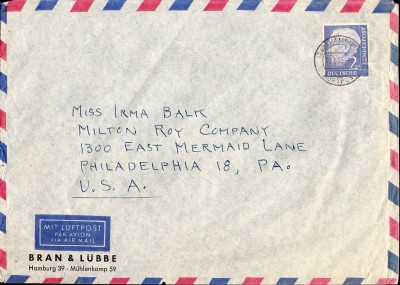 DEUTSCHE
BUNDESPOST
2
MISS IRMA BALK
MILTON ROY COMPANY
1300 EAST MERMAID LANE
PHILADELPHIA 18, PA.
U.S.A.
MIT LUFTPOST
PAR AVION
VIA AIR MAIL
BRAN & LÜBBE
Hamburg 39 - Mühlenkamp 59